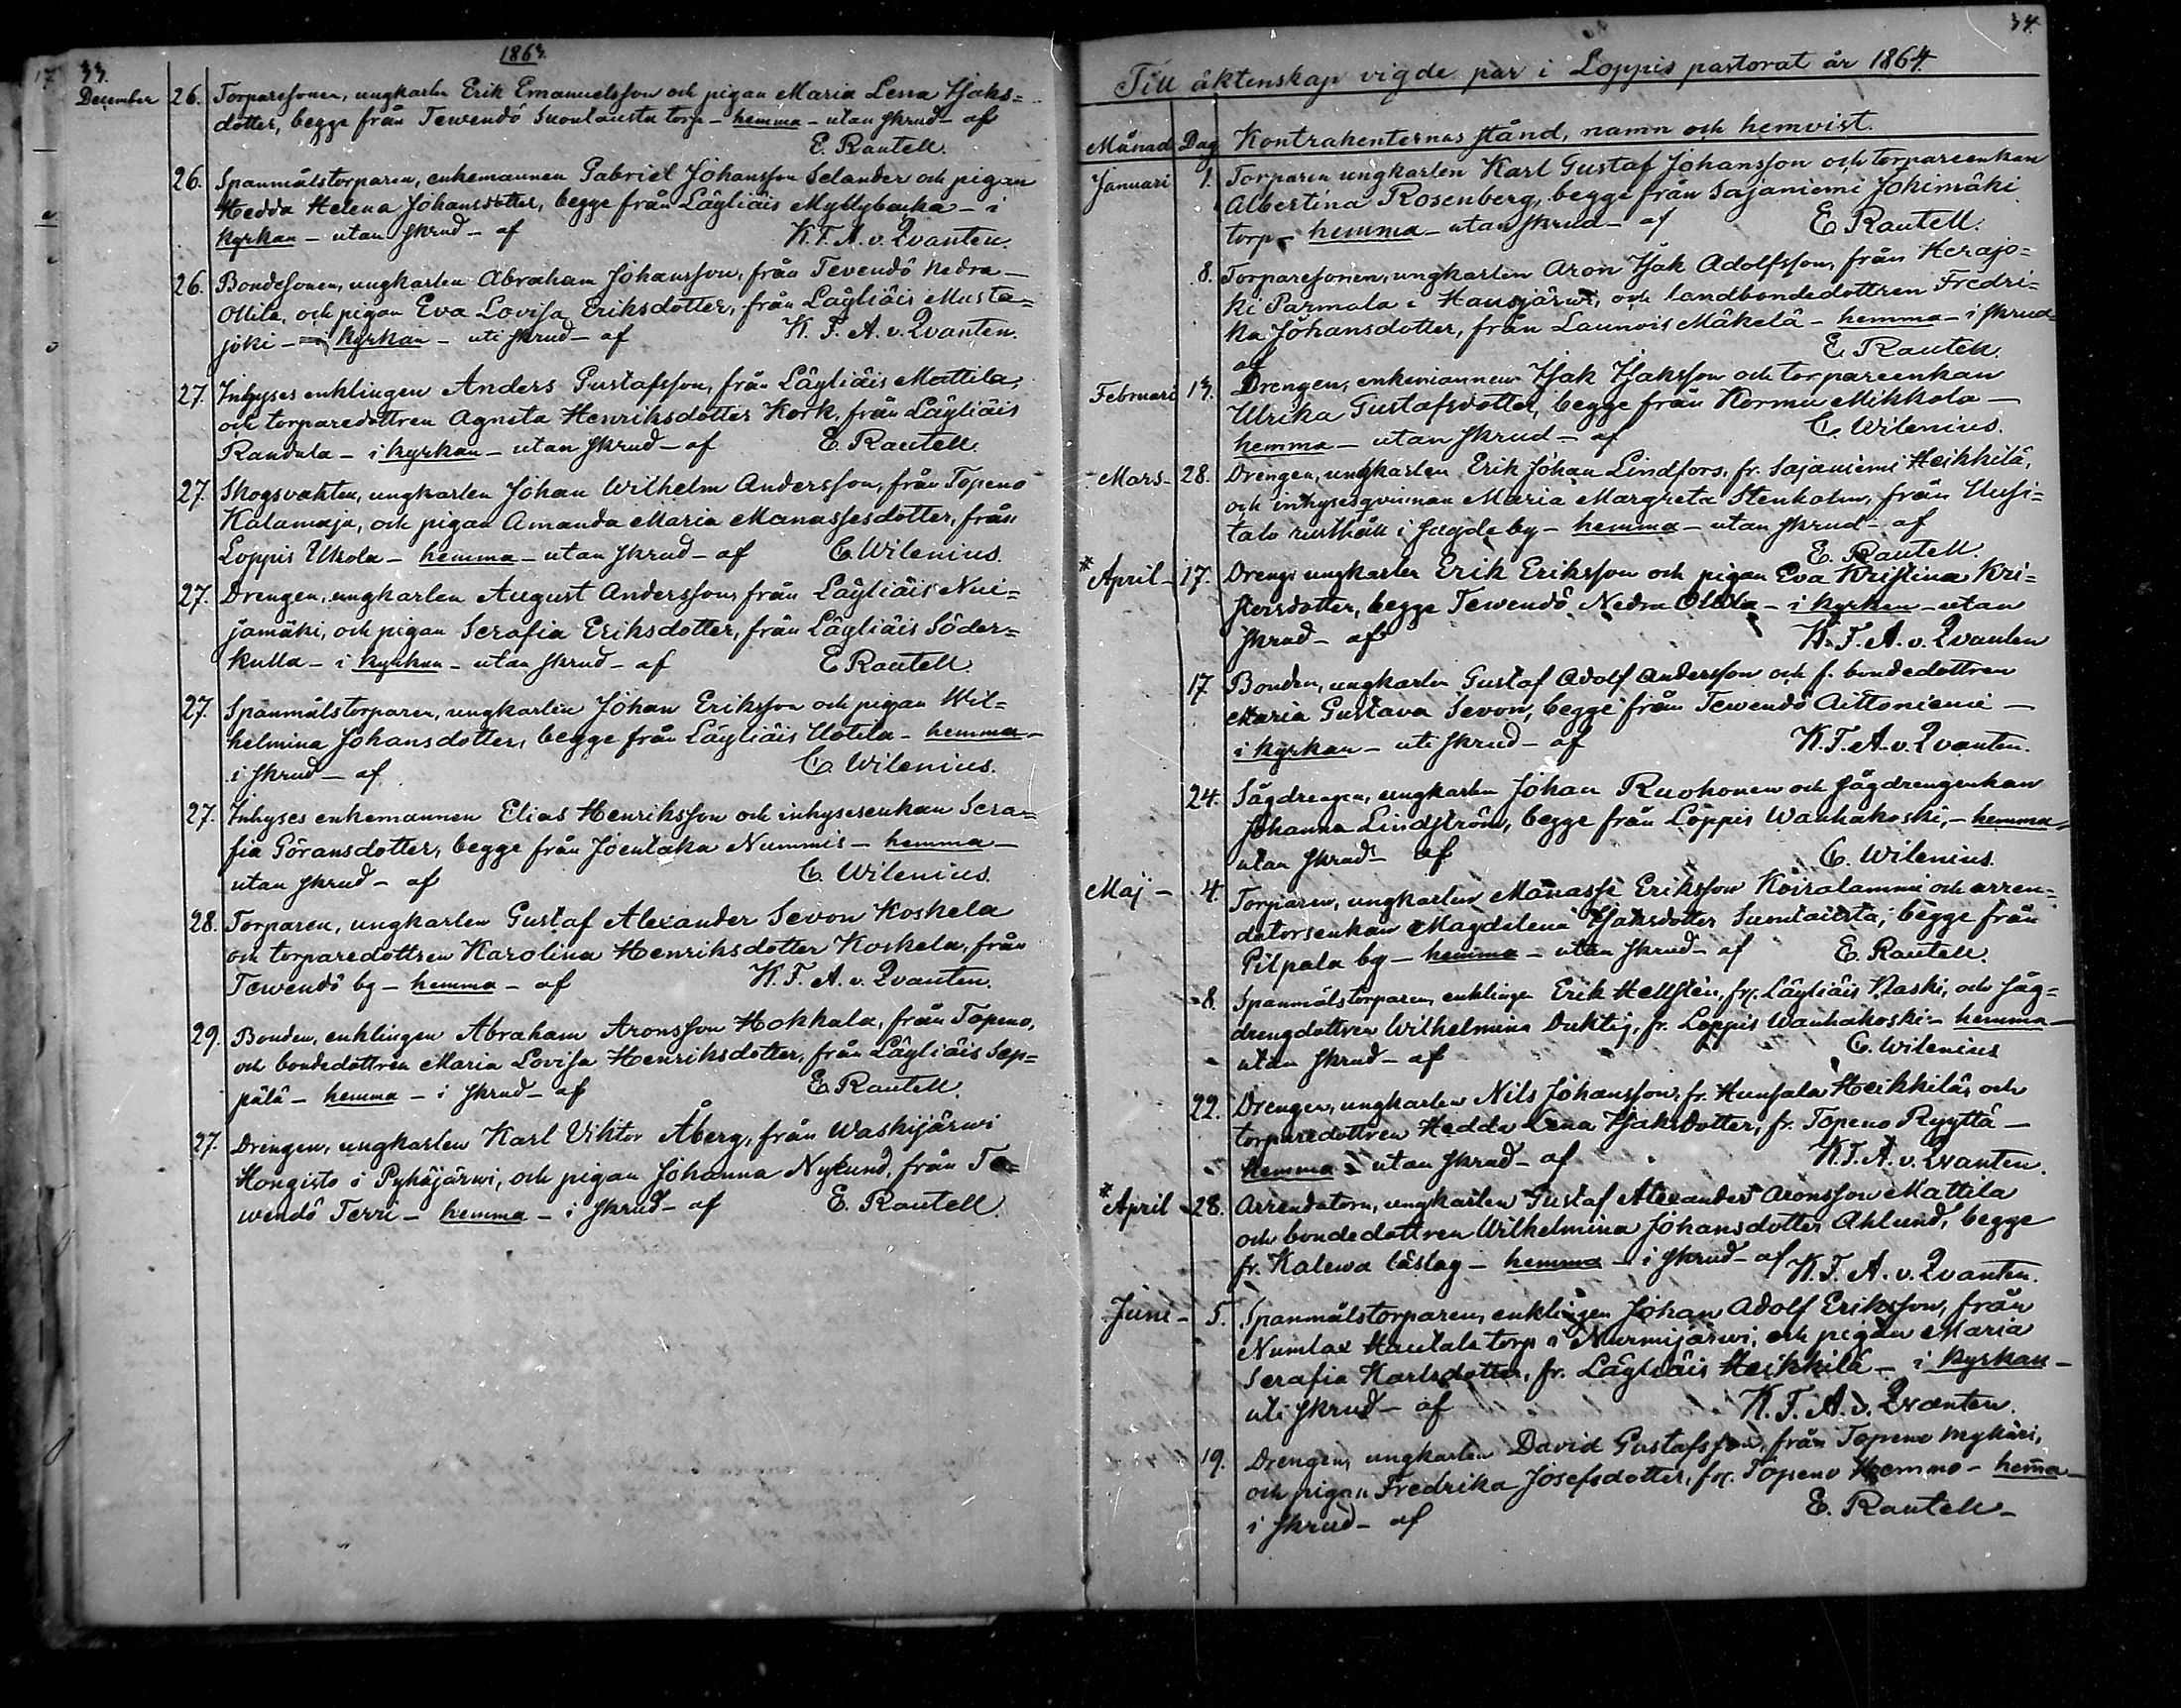 33.
1863.
December 26. Torparesonen, ungkarlen Erik Emanuelsson och pigan Maria Lena Isaks=
dotter, begge från Tewendö Suontausta torp - hemma - utan skrud - af
E. Rautell.
26. Spanmålstorparen, enkemannen Gabriel Johansson Selander och pigan
Hedda Helena Johansdotter, begge från Läyliäis Myllybacka - i
kyrkan - utan skrud - af K. F. A. v. Qvanten.
26. Bondesonen, ungkarlen Abraham Johansson, från Tevendö Nedra
Ollila, och pigan Eva Lovisa Eriksdotter, från Läyliäis Musta=
joki - i kyrkan - uti skrud - af K. F. A. v. Qvanten.
27. Inhyses enklingen Anders Gustafsson, från Läyliäis Mattila,
och torparedottren Agneta Henriksdotter Kork, från Läyliäis
Randula - i kyrkan - utan skrud - af E. Rautell.
27. Skogsvakten, ungkarlen Johan Wilhelm Andersson, från Topeno
Kalamaja, och pigan Amanda Maria Manassesdotter, från
Loppis Uskola - hemma - utan skrud - af C. Wilenius.
27. Drengen, ungkarlen August Andersson, från Läyliäis Nui=
jamäki, och pigan Serafia Eriksdotter, från Läyliäis Söder=
kulla - i kyrkan - utan skrud - af E. Rautell.
27. Spanmålstorparen, ungkarlen Johan Eriksson och pigan Wil=
helmina Johansdotter, begge från Läyliäis Uotila - hemma -
i skrud - af C. Wilenius.
27. Inhyses enkemannen Elias Henriksson och inhysesenkan Sera=
fia Göransdotter, begge från Joentaka Nummis - hemma -
utan skrud - af C. Wilenius.
28. Torparen, ungkarlen Gustaf Alexander Sevon Koskela
och torparedottren Karolina Henriksdotter Koskela, från
Tewendö by - hemma - af K. F. A. v. Qvanten.
29. Bonden, enklingen Abraham Aronsson Hokkala, från Topeno,
och bondedottren Maria Lovisa Henriksdotter, från Läyliäis Sep=
pälä - hemma - i skrud - af E. Rautell.
27. Drengen, ungkarlen Karl Viktor Åberg, från Waskijärwi
Hongisto i Pyhäjärwi, och pigan Johanna Nylund, från Te=
wendö Terri - hemma - i skrud - af E. Rautell.
34.
Till äktenskap vigde par i Loppis pastorat år 1864.
Månad Dag Kontrahenternas stånd, namn och hemvist.
Januari 1. Torparen ungkarlen Karl Gustaf Johansson och torpareenkan
Albertina Rosenberg, begge från Sajaniemi Jokimäki
torp - hemma - utan skrud - af E. Rautell.
8. Torparesonen, ungkarlen Aron Isak Adolfsson, från Herajo=
ki Parmala i Hausjärwi, och landbondedottren Fredri=
ka Johansdotter, från Launois Mäkelä - hemma - i skrud -
af E. Rautell.
Februari 13. Drengen, enkemannen Isak Isaksson och torpareenkan
Ulrika Gustafsdotter, begge från Kormu Mikkola -
hemma - utan skrud - af C. Wilenius.
Mars - 28. Drengen, ungkarlen Erik Johan Lindfors, fr. Sajaniemi Heikkilä,
och inhysesqvinnan Maria Margreta Stenholm, från Uusi=
talo rusthåll i by - hemma - utan skrud - af
E. Rautell.
* April - 17. Dreng. ungkarlen Erik Eriksson och pigan Eva Kristina Kri=
stersdotter, begge Tewendö Nedra Ollila - i kyrkan - utan
skrud - af K. F. A. v. Qvanten
17 Bonden, ungkarlen Gustaf Adolf Andersson och f. bondedottren
Maria Gustava Sevon, begge från Tewendö Aittoniemi -
i kyrkan - uti skrud - af K. F. A. v. Qvanten.
24. Sågdrengen, ungkarlen Johan Ruohonen och sågdrengenkan
Johanna Lindström, begge från Loppis Wanhakoski, - hemma -
utan skrud - af C. Wilenius.
Maj - 4. Torparen, ungkarlen Manasse Eriksson Koiralammi och arren=
datorsenkan Magdelena Isaksdotter Suontausta, begge från
Pilpala by - hemma - utan skrud - af E. Rautell.
- 8. Spanmålstorparen, enklingen Erik Hellsten, fr. Läyliäis Kaski, och såg=
drengdottren Wilhelmina Duktig, fr. Loppis Wanhakoski - hemma -
- utan skrud - af C. Wilenius
22. Drengen, ungkarlen Nils Johansson, fr. Hunsala Heikkilä, och
torparedottren Hedda Lena Isaksdotter, fr. Topeno Ryyttä -
hemma - utan skrud - af K. F. A. v. Qvanten.
* April - 28. Arrendatorn, ungkarlen Gustaf Alexander Aronsson Mattila
och bondedottren Wilhelmina Johansdotter Ahlund, begge
fr. Kalewa läslag - hemma - i skrud - af K. F. A. v. Qvanten.
Juni - 5. Spanmålstorparen, enklingen Johan Adolf Eriksson, från
Numlax Hautala torp i Nurmijärwi, och pigan Maria
Serafia Karlsdotter, fr. Läyliäis Heikkilä - i kyrkan -
uti skrud - af K. F. A. v. Qvanten.
19. Drengen, ungkarlen David Gustafsson, från Topeno Mykäri,
och pigan Fredrika Josefsdotter, fr. Topeno Hemmo - hem̄a -
i skrud - af E. Rautell -